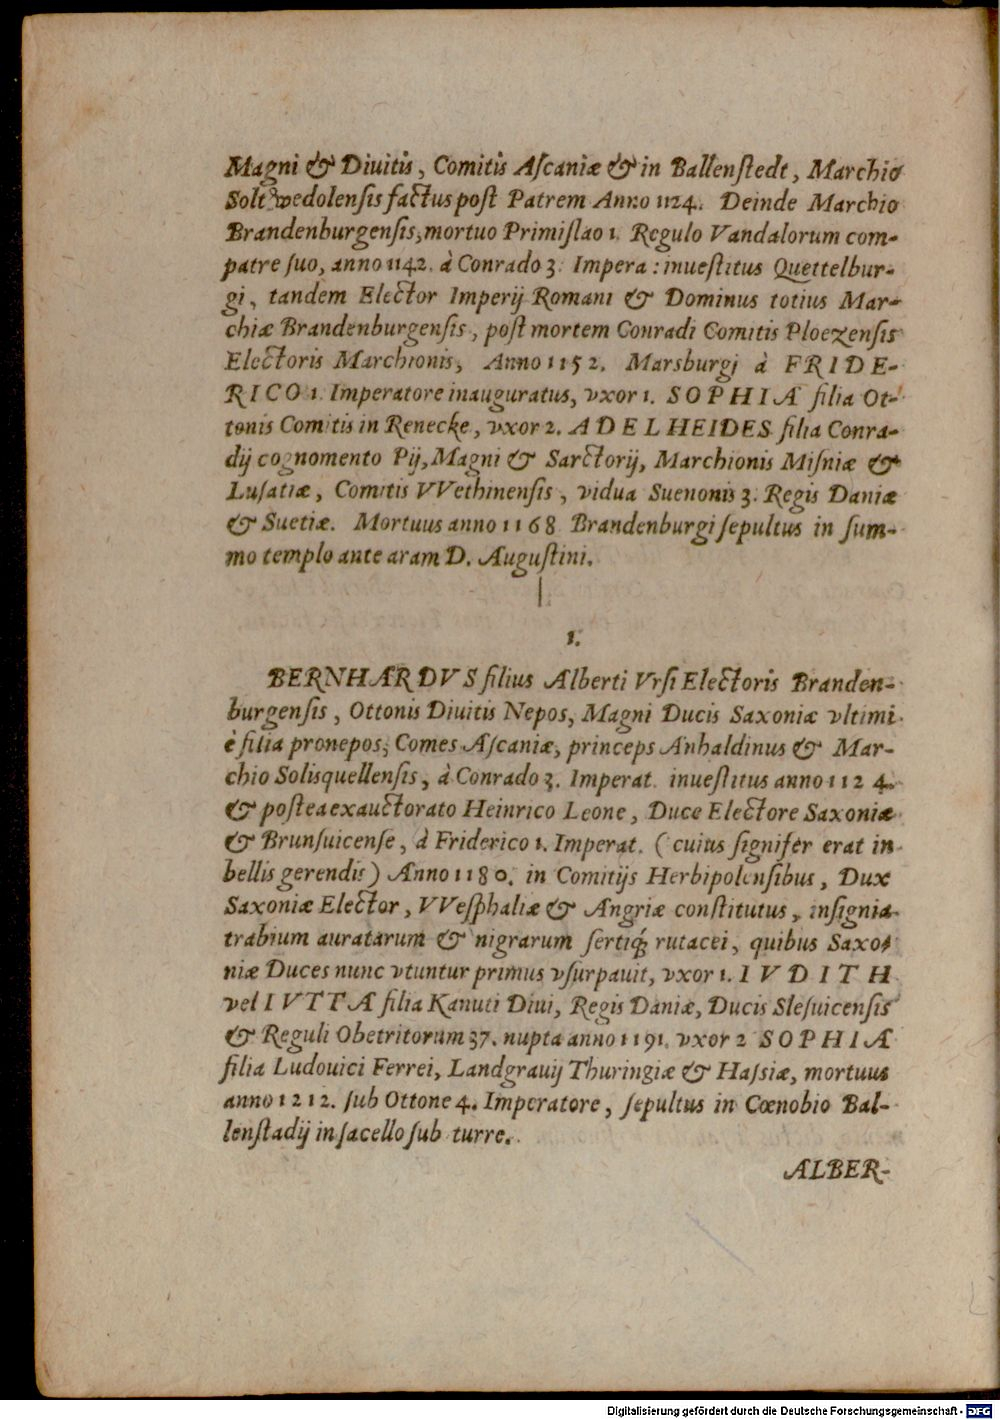 Magni & Diuitis, Comitis Aſcaniæ & in Ballenſtedt, Marchio
Soltwedolenſis factus poſt Patrem Anno 1124. Deinde Marchio
Brandenburgenſis, mortuo Primiſlao 1. Regulo Vandalorum com-
patre ſuo, anno 1142. à Conrado 3. Impera: inueſtitus Quettelbur-
gi, tandem Elector Imperij Romani & Dominus totius Mar-
chiæ Brandenburgenſis, poſt mortem Conradi Comitis Ploezenſis
Electoris Marchionis, Anno 1152. Marsburgj à FRIDE-
RICO 1. Imperatore inauguratus, vxor 1. SOPHIA filia Ot-
tonis Comitis in Renecke, vxor 2. ADELHEIDES filia Conra-
dij cognomento Pij, Magni & Sarctorij, Marchionis Miſniæ &
Luſatiæ, Comitis VVethinenſis, vidua Suenonis 3. Regis Daniæ
& Suetiæ. Mortuus anno 1168 Brandenburgi ſepultus in ſum-
mo templo ante aram D. Auguſtini.
1.
BERNHARDVS filius Alberti Vrſi Electoris Branden-
burgenſis, Ottonis Diuitis Nepos, Magni Ducis Saxoniæ vltimi
è filia pronepos, Comes Aſcaniæ, princeps Anhaldinus & Mar-
chio Solisquellenſis, à Conrado 3. Imperat. inueſtitus anno 1124.
& poſtea exauctorato Heinrico Leone, Duce Electore Saxoniæ
& Brunſuicenſe, à Friderico 1. Imperat. (cuius ſignifer erat in
bellis gerendis) Anno 1180. in Comitijs Herbipolenſibus, Dux
Saxoniæ Elector, VVeſphaliæ & Angriæ conſtitutus, inſignia
trabium auratarum & nigrarum ſertiq́; rutacei, quibus Saxo-
niæ Duces nunc vtuntur primus vſurpauit, vxor 1. IVDITH
vel IVTTA filia Kanuti Diui, Regis Daniæ, Ducis Sleſuicenſis
& Reguli Obetritorum 37. nupta anno 1191. vxor 2 SOPHIA
filia Ludouici Ferrei, Landgrauij Thuringiæ & Haſsiæ, mortuus
anno 1212. ſub Ottone 4. Imperatore, ſepultus in Cœnobio Bal-
lenſtadij in ſacello ſub turre.
ALBER-
Digitalisierung gefördert durch die Deutsche Forschungsgemeinschaft - DFG